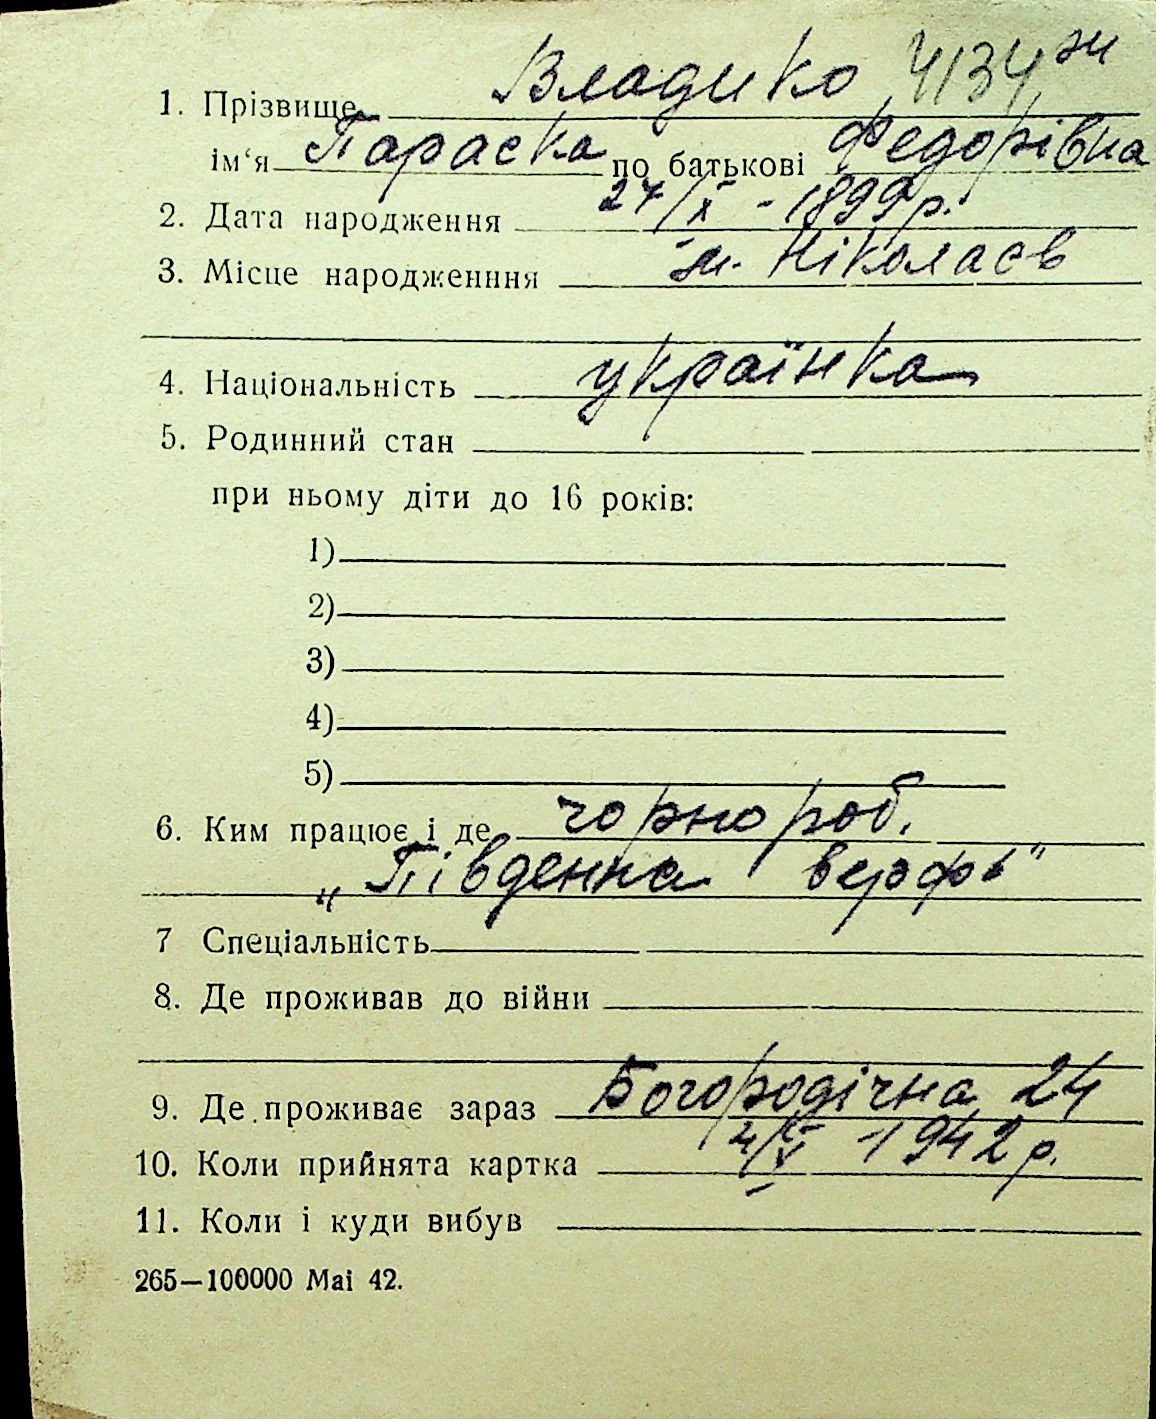 1. Прізвище Владико 4134 зи
ім‘я Параска по батькові Федорівна
2. Дата народження 27/X - 1899 р.
3. Місце народженння м. Ніколаєв
4. Національність українка
5. Родинний стан
при ньому діти до 16 років:
1)
2)
3)
4)
5)
6. Ким працює і де чорнороб.
„Південна верфь"
7 Спеціальність
8. Де проживав до війни
9. Де проживає зараз Богородічна 24
10. Коли прийнята картка 4/V 1942 р.
11. Коли і куди вибув
265—100000 Mai 42.